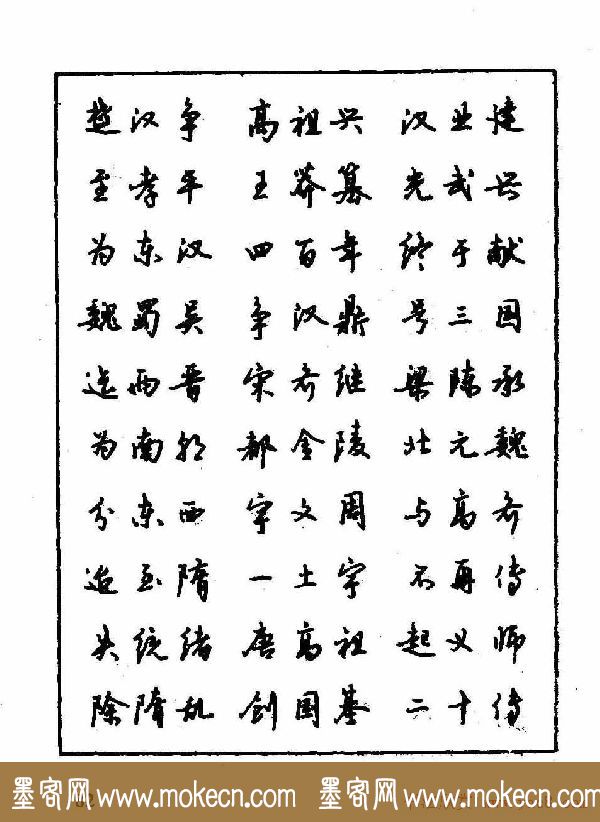 楚汉争 高祖兴 汉业建
至孝平 王莽篡 光武兴
为东汉 四百年 终于献
魏蜀吴 争汉鼎 号三国
迄两晋 宋齐继 梁陈承
为南朝 都金陵 北元魏
分东西 宇文周 与高齐
迨至隋 一土宇 不再传
失统绪 唐高祖 起义师
除隋乱 创国基 二十传
墨客网 www.mokecn.com 墨客网 www.mokecn.com